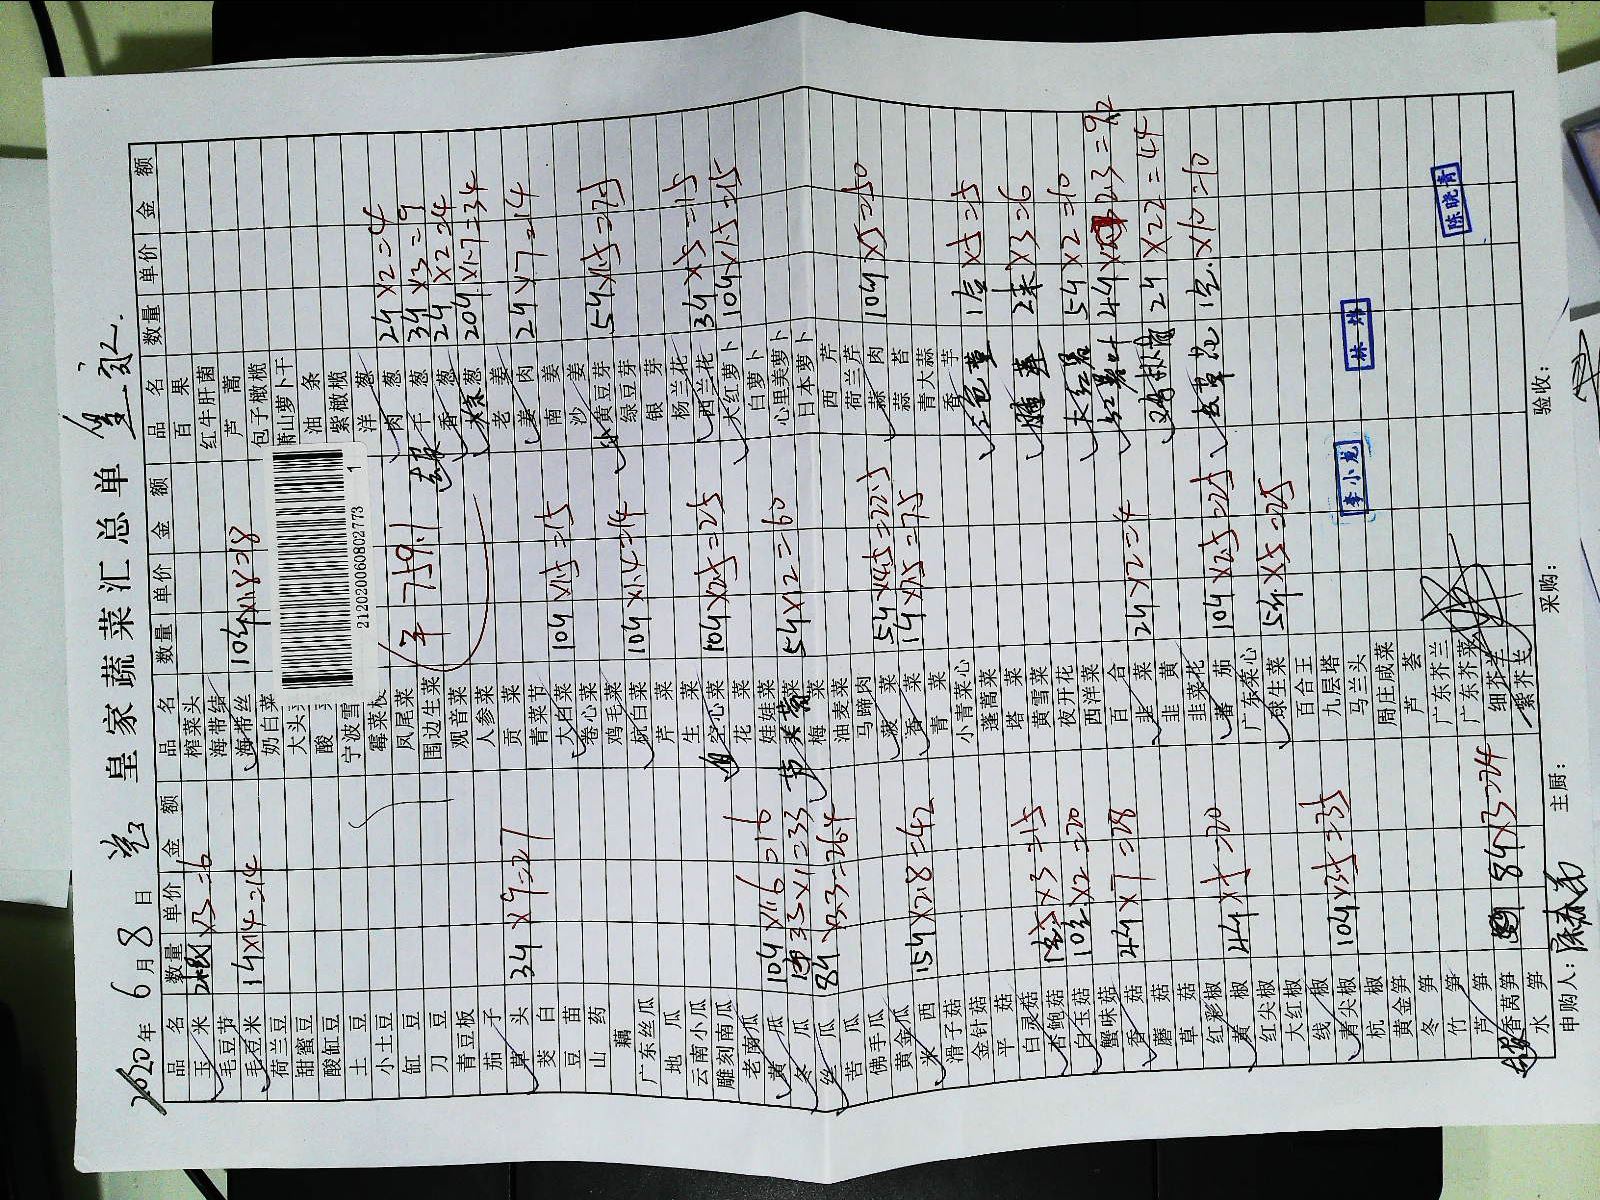 皇家蔬菜汇总单
2020年6月8日
品名 数量 单价 金额 品名 数量 单价 金额 品名 数量 单价 金额
玉米 ×3=6 榨菜头 百果
毛豆节 海带结 红牛肝菌
毛豆米 14×14=14 海带丝 10斤×1.8=18 芦蒿
荷兰豆 奶白菜 包子橄榄
甜蜜豆 大头 萧山萝卜干
酸缸豆 酸 油条
土豆 宁波雪 紫橄榄
小土豆 霉菜 洋葱 2斤×2=4
缸豆 凤尾菜 肉葱 3斤×3=9
刀豆 围边生菜 干葱 2斤×2=4
青豆板 观音菜 香葱 20斤×1.7=34
茄子 人参菜 老姜
草头 3斤×9=27 贡菜 姜肉 2斤×7=14
茭白 青菜节 南姜
豆苗 大白菜 10斤×1.5=15 沙姜
山药 卷心菜 黄豆芽 5斤×1.5=7.5
藕 鸡毛菜 绿豆芽
广东丝瓜 杭白菜 10斤×1.4=14 银芽
地瓜 芹菜 杨兰花
云南小瓜 生菜 西兰花 3斤×5=15
雕刻南瓜 空心菜 10斤×2.5=25 大红萝卜 10斤×1.5=15
老南瓜 花菜 白萝卜
黄瓜 10斤×1.6=16 娃娃菜 心里美萝卜
冬瓜 33×1=33 5斤×12=60 日本萝卜
丝瓜 8斤×3.3=26.4 梅菜 西芹
苦瓜 油麦菜 荷兰芹
佛手瓜 马蹄肉 蒜肉 10斤×5=50
黄金瓜 菠菜 5斤×4.5=22.5 蒜苔
米西 15斤×2.8=42 香菜 1斤×7.5=7.5 青大蒜
滑子菇 青菜 香芋
金针菇 小青菜心 ×5=5
平菇 蓬蒿菜
白灵菇 塔菜 ×3=6
杏鲍菇 ×3=15 黄雪菜
白玉菇 10包×2=20 夜开花 5斤×2=10
蟹味菇 西洋菜 4斤×23=92
香菇 4斤×7=28 百合
蘑菇 韭菜 2斤×2=4 2斤×22=44
草菇 韭黄
红彩椒 韭菜花 ×10=10
黄椒 4斤×5=20 蕃茄 10斤×2.5=25
红尖椒 广东菜心
大红椒 球生菜 5斤×5=25
线椒 百合王
青尖椒 10斤×3.5=35 九层塔
杭椒 马兰头
黄金笋 周庄咸菜
冬笋 芦荟
竹笋 广东芥兰
芦笋 广东芥菜
香莴笋 8斤×3=24 细芥羊
水笋 紫芥羊
2112020060802773 1
759.1
李小龙
林炜
陈晓青
申购人： 主厨： 采购： 验收：